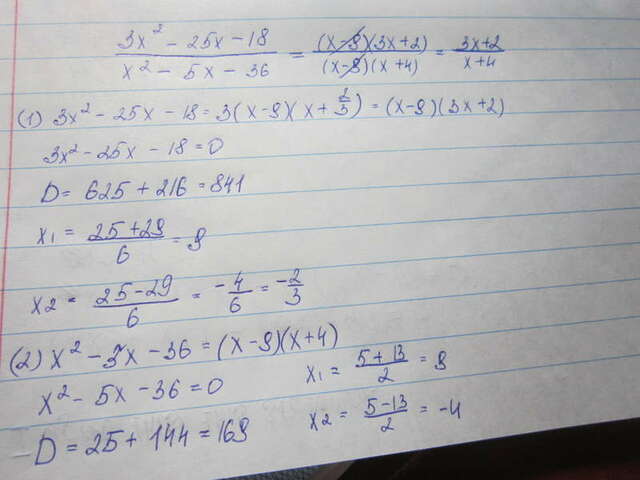 3x² - 25x - 18 / x² - 5x - 36 = (x-9)(3x+2) / (x-9)(x+4) = 3x+2 / x+4
(1) 3x² - 25x - 18 = 3(x-9)(x + 2/3) = (x-9)(3x+2)
3x² - 25x - 18 = 0
D = 625 + 216 = 841
x1 = 25+29 / 6 = 9
x2 = 25-29 / 6 = -4/6 = -2/3
(2) x² - 5x - 36 = (x-9)(x+4)
x² - 5x - 36 = 0
D = 25 + 144 = 169
x1 = 5+13 / 2 = 9
x2 = 5-13 / 2 = -4